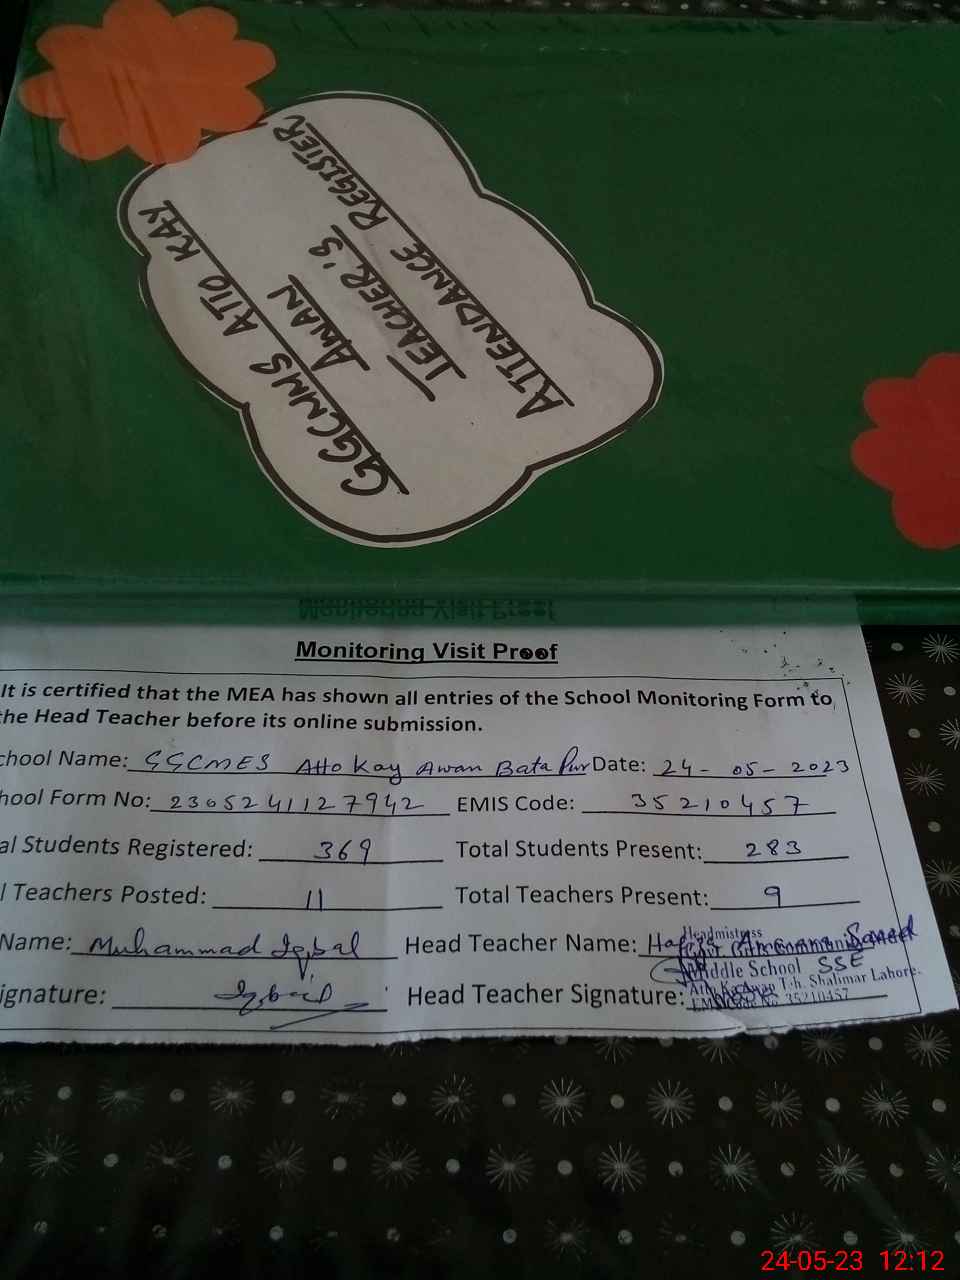 GGCMMS ATTO KAY
AWAN
TEACHER'S
ATTENDANCE REGISTER
Monitoring Visit Proof
It is certified that the MEA has shown all entries of the School Monitoring Form to
the Head Teacher before its online submission.
chool Name: GGCMES Atto Kay Awan Bata Pur Date: 24-05-2023
hool Form No: 2305241127942 EMIS Code: 35210457
al Students Registered: 369 Total Students Present: 283
l Teachers Posted: 11 Total Teachers Present: 9
Name: Muhammad Iqbal Head Teacher Name: Saeed
SSE
ignature: Iqbal Head Teacher Signature:
Headmistress
Govt. Girls Community
Middle School
Awan Teh. Shalimar Lahore.
EMIS Code No. 35210457
24-05-23 12:12